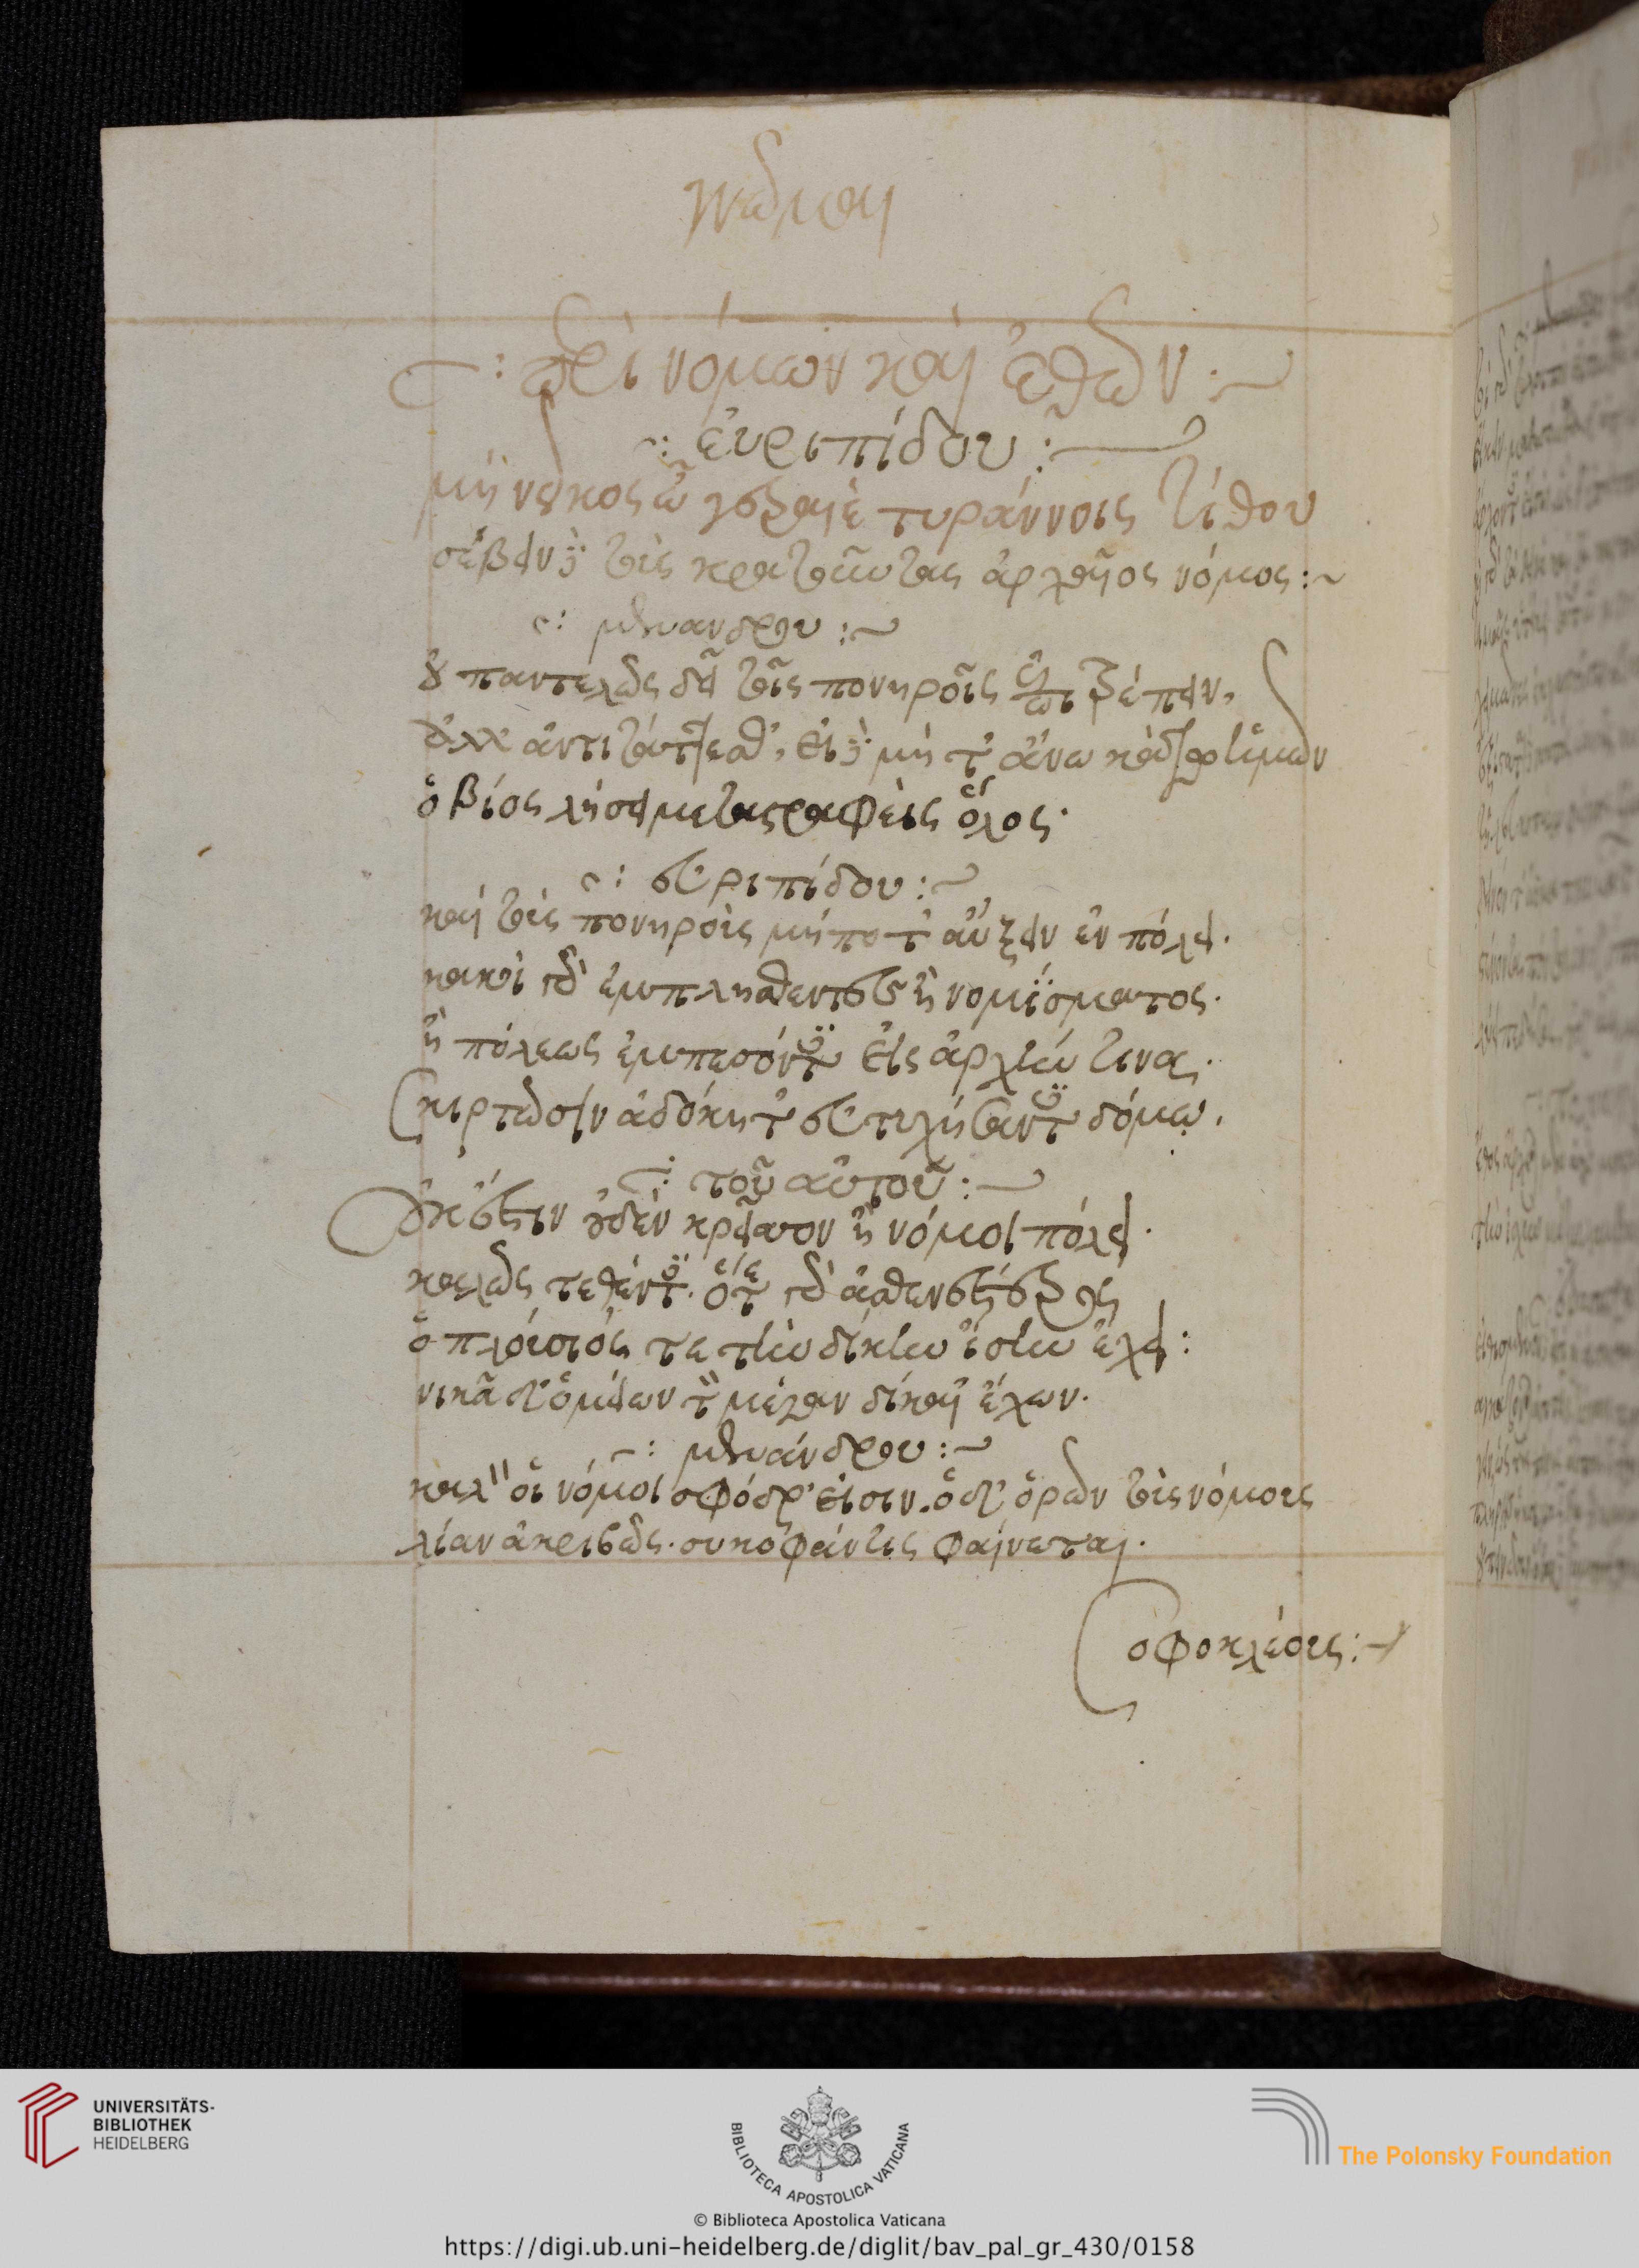 γνῶμαι
περὶ νόμων καὶ ἐθῶν :~
εὐριπίδου :~
μὴ νεῖκος ὦ γεραιὲ τυράννοις τίθου
σέβειν δὲ τοὺς κρατοῦντας ἀρχαῖος νόμος :~
μενανδρου :~
οὐ παντελῶς δεῖ τοῖς πονηροῖς ἐπιτρέπειν,
ἀλλ' ἀντιτάττεσθ', εἰ δὲ μὴ τ' ἄνω κάτω ἡμῶν
ὁ βίος λήσει μεταστραφεὶς ὅλος.
εὐριπίδου :~
καὶ τοὺς πονηροὺς μήποτ' αὔξειν ἐν πόλει.
κακοὶ γὰρ ἐμπλησθεντες ἢ νομίσματος.
ἢ πόλεως ἐμπεσόντες εἰς ἀρχήν τινα.
σκιρτῶσιν ἀδόκητ' εὐτυχήσαντες δόμω.
τοῦ αὐτοῦ :~
οὐκ ἔστιν οὐδὲν κρεῖσσον ἢ νόμοι πόλει.
καλῶς τεθέντες. ὅτε γὰρ ἀσθενέστερος
ὁ πλούσιός τε τὴν δίκην ἴσην ἔχει :
νικᾶ δ' ὁ μείων τὸν μέγαν δίκαι' ἔχων.
μενάνδρου :~
καλὸν οἱ νόμοι σφόδρ' εἰσιν. ὁ δ' ὁρῶν τοὺς νόμους
λίαν ἀκριβῶς. συκοφάντης φαίνεται.
σοφοκλέους :~
UNIVERSITÄTS-
BIBLIOTHEK
HEIDELBERG
BIBLIOTECA APOSTOLICA VATICANA
The Polonsky Foundation
© Biblioteca Apostolica Vaticana
https://digi.ub.uni-heidelberg.de/diglit/bav_pal_gr_430/0158